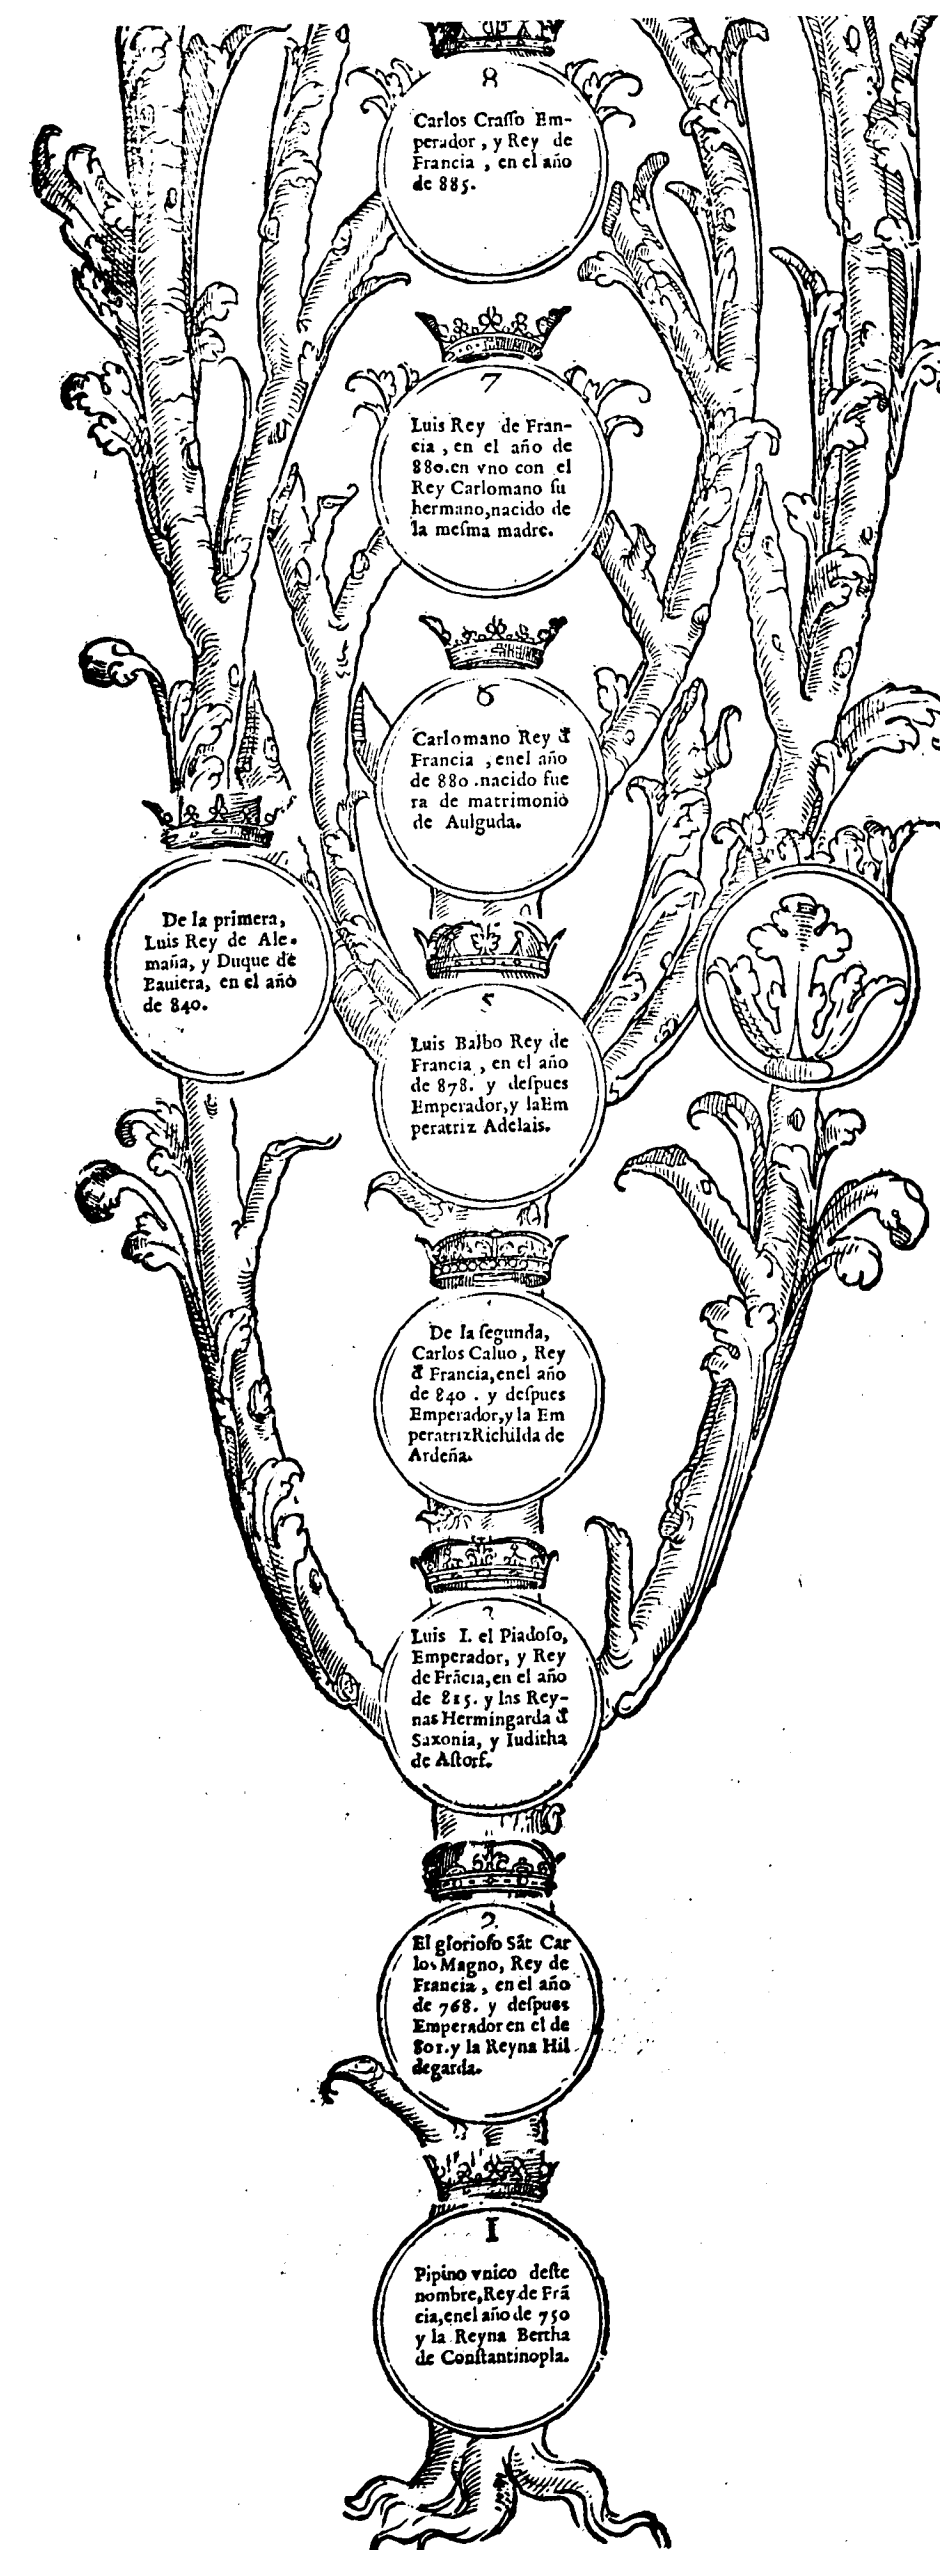 8
Carlos Craſſo Em-
perador, y Rey de
Francia, en el año
de 885.
7
Luis Rey de Fran-
cia, en el año de
880.en vno con el
Rey Carlomano ſu
hermano,nacido de
la meſma madre.
6
Carlomano Rey đ
Francia, enel año
de 880.nacido fue
ra de matrimonio
de Aulguda.
De la primera,
Luis Rey de Ale-
maña, y Duque de
Bauiera, en el año
de 840.
5
Luis Balbo Rey de
Francia, en el año
de 878. y deſpues
Emperador,y laEm
peratriz Adelais.
De la ſegunda,
Carlos Caluo, Rey
đ Francia,enel año
de 840. y deſpues
Emperador,y la Em
peratrizRichilda de
Ardeña.
3
Luis I. el Piadoſo,
Emperador, y Rey
de Frācia,en el año
de 815. y las Rey-
nas Hermingarda đ
Saxonia, y Iuditha
de Aſtorf.
2
El glorioſo Sāt Car
los Magno, Rey de
Francia, en el año
de 768. y deſpues
Emperador en el de
801.y la Reyna Hil
degarda.
I
Pipino vnico deſte
nombre,Rey de Frā
cia,enel año de 750
y la Reyna Bertha
de Conſtantinopla.